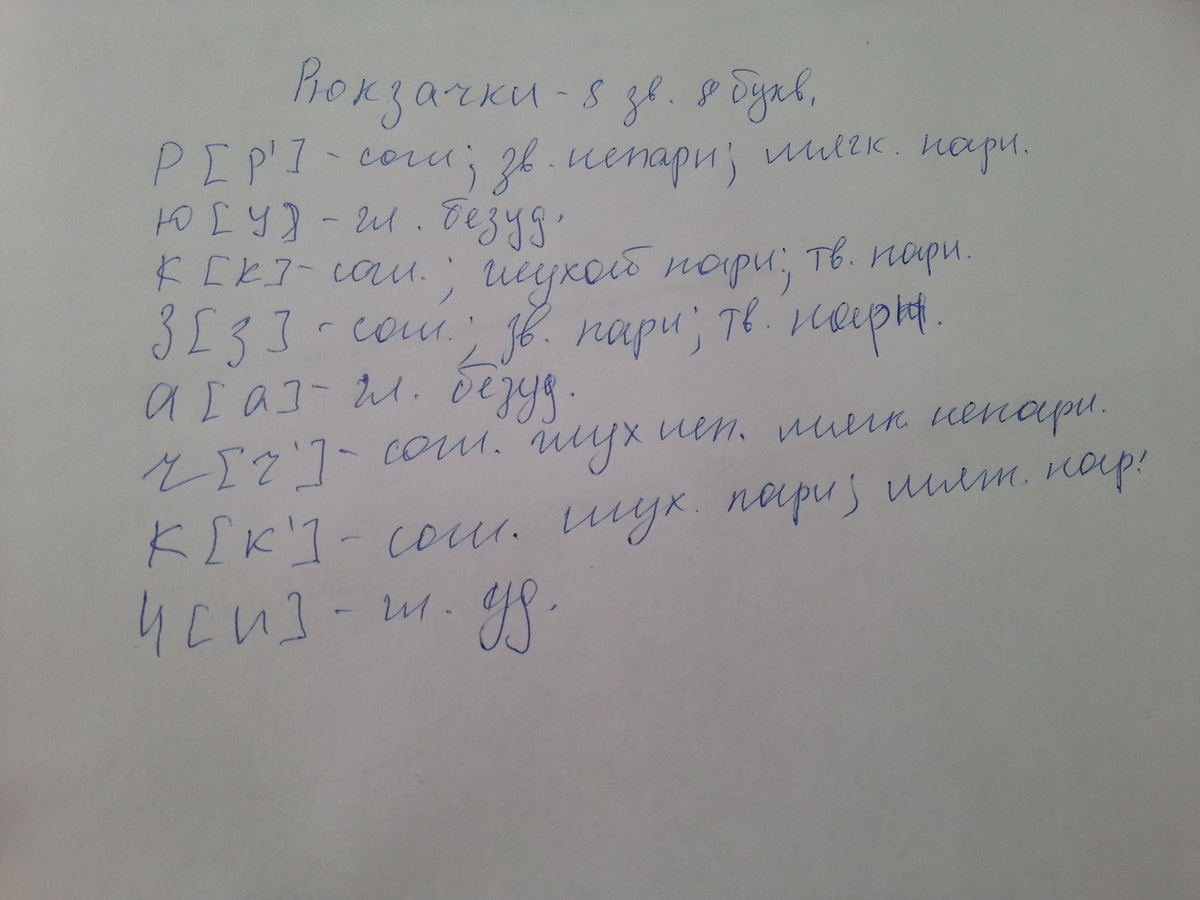 Рюкзачки - 8 зв. 8 букв.
Р [р'] - согл; зв. непарн; мягк. парн.
Ю [у] - гл. безуд.
К [к] - согл.; глухой парн; тв. парн.
З [з] - согл.; зв. парн; тв. парн.
а [а] - гл. безуд.
ч [ч'] - согл. глух неп. мягк. непарн.
К [к'] - согл. глух. парн; мягк. пар.
И [и] - гл. уд.